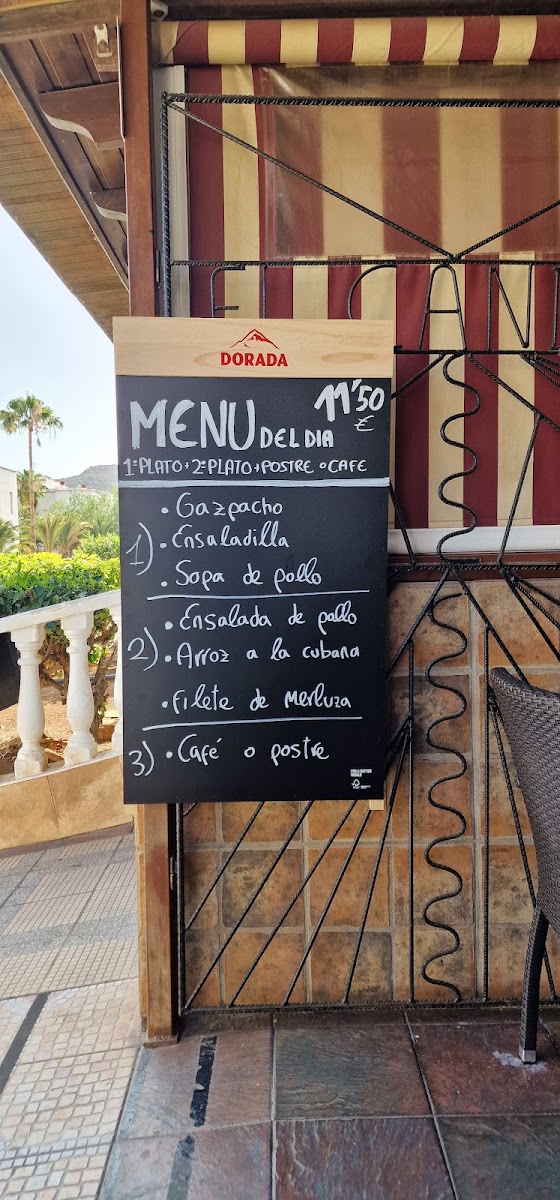 DORADA
MENU DEL DIA 11'50 €
1º PLATO + 2º PLATO + POSTRE o CAFE
1) • Gazpacho
• Ensaladilla
• Sopa de pollo
2) • Ensalada de pollo
• Arroz a la cubana
• Filete de merluza
3) • Café o postre
FSC